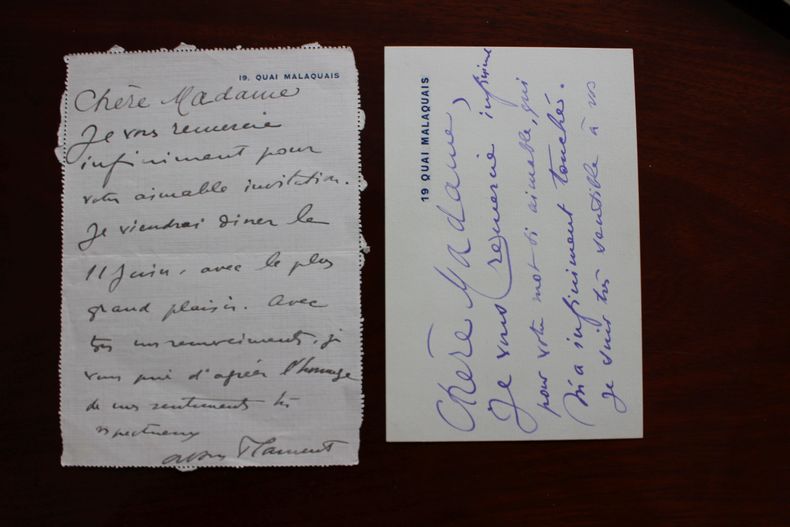 19. QUAI MALAQUAIS
Chère Madame
Je vous remercie
infiniment pour
votre aimable invitation.
Je viendrai diner le
11 Juin, avec le plus
grand plaisir. Avec
tous mes remerciments, je
vous prie d'agréer l'homage
de mes sentiments très
respectueux
Flament
19 QUAI MALAQUAIS
Chère Madame,
Je vous remercie infiniment
pour votre mot si aimable, qui
m'a infiniment touché.
Je suis très sensible à vos